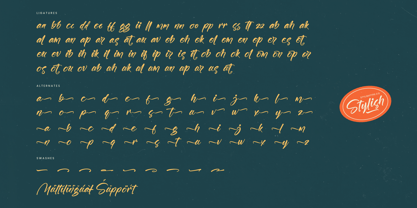 LIGATURES
aa bb cc dd ee ff gg ii ll mm nn oo pp rr ss tt zz ab ah ak
al am an ap ar as at au av eb eh ek el em en ep er es et
eu ev ib ih ik il im in if ip ir is it ob oh ok ol om on or op er
os ot ou ov ab ah ak al am an ap ar as at
ALTERNATES
a b c d e f g h i j k l m
n o p q r s t u v w x y z
a b c d e f g h i j k l m
n o p q r s t u v w x y z
SWASHES
Multilingual Support
Stylish